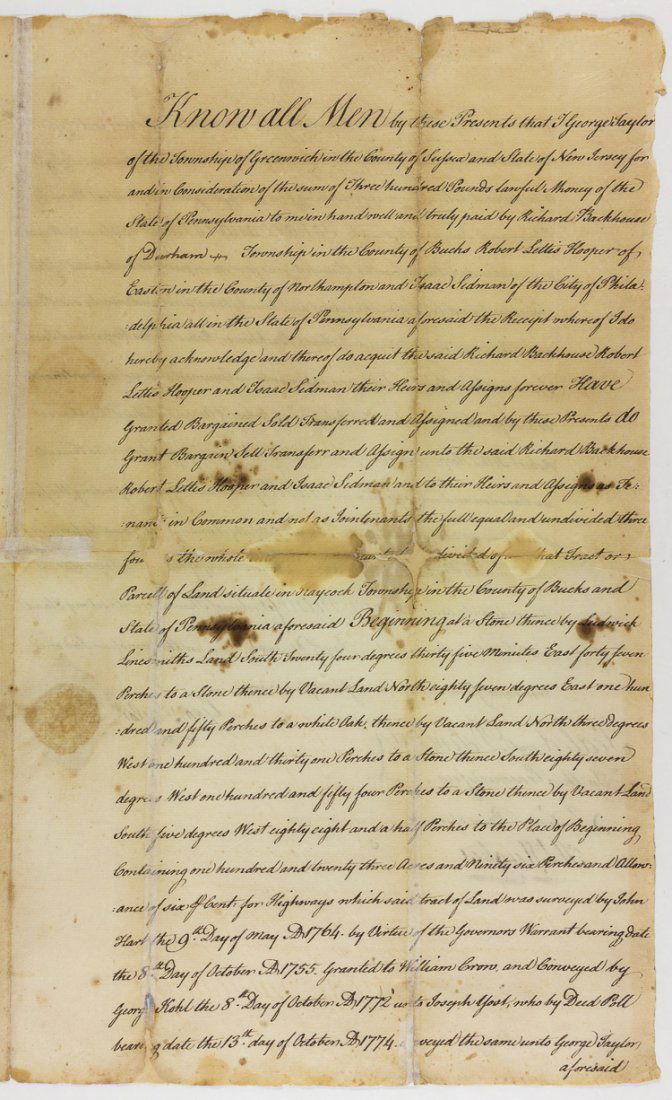 Know all Men by these Presents that I George Taylor
of the Township of Greenwich in the County of Sussex and State of New Jersey for
and in Consideration of the sum of Three hundred Pounds lawful Money of the
State of Pennsylvania to me in hand well and truly paid by Richard Backhouse
of Durham Township in the County of Bucks Robert Lettis Hooper of
Easton in the County of Northampton and Isaac Sidman of the City of Phila:
:delphia all in the State of Pennsylvania aforesaid the Receipt whereof I do
hereby acknowledge and thereof do acquit the said Richard Backhouse Robert
Lettis Hooper and Isaac Sidman their Heirs and Assigns forever Have
Granted Bargained Sold Transferred and Assigned and by these Presents do
Grant Bargain Sell Transferr and Assign unto the said Richard Backhouse
Robert Lettis Hooper and Isaac Sidman and to their Heirs and Assigns as Te:
:nants in Common and not as Jointenants the full equal and undivided three
the whole divided of that Tract or
Parcell of Land situate in Haycock Township in the County of Bucks and
State of Pennsylvania aforesaid Beginning at a Stone thence by Ludwick
Linesmiths Land South Twenty four degrees thirty five Meniutes East forty seven
Perches to a Stone thence by Vacant Land North eighty seven degrees East one hun
:dred and fifty Perches to a white Oak, thence by Vacant Land North three degrees
West one hundred and thirty one Perches to a Stone thence South eighty seven
degrees West one hundred and fifty four Perches to a Stone thence by Vacant Land
South five degrees West eighty eight and a half Perches to the Place of Beginning
Containing one hundred and twenty three Acres and Ninety six Perches and Allow-
:ance of six ⅌ Cent: for Highways which said tract of Land was surveyed by John
Hart the 9th Day of May AD 1764. by Virtue of the Governors Warrant bearing date
the 8th Day of October AD 1755. Granted to William Crow, and Conveyed by
George Kohl the 8th Day of October AD 1772 unto Joseph Yost, who by Deed Poll
bearing date the 13th day of October AD 1774. conveyed the same unto George Taylor
aforesaid